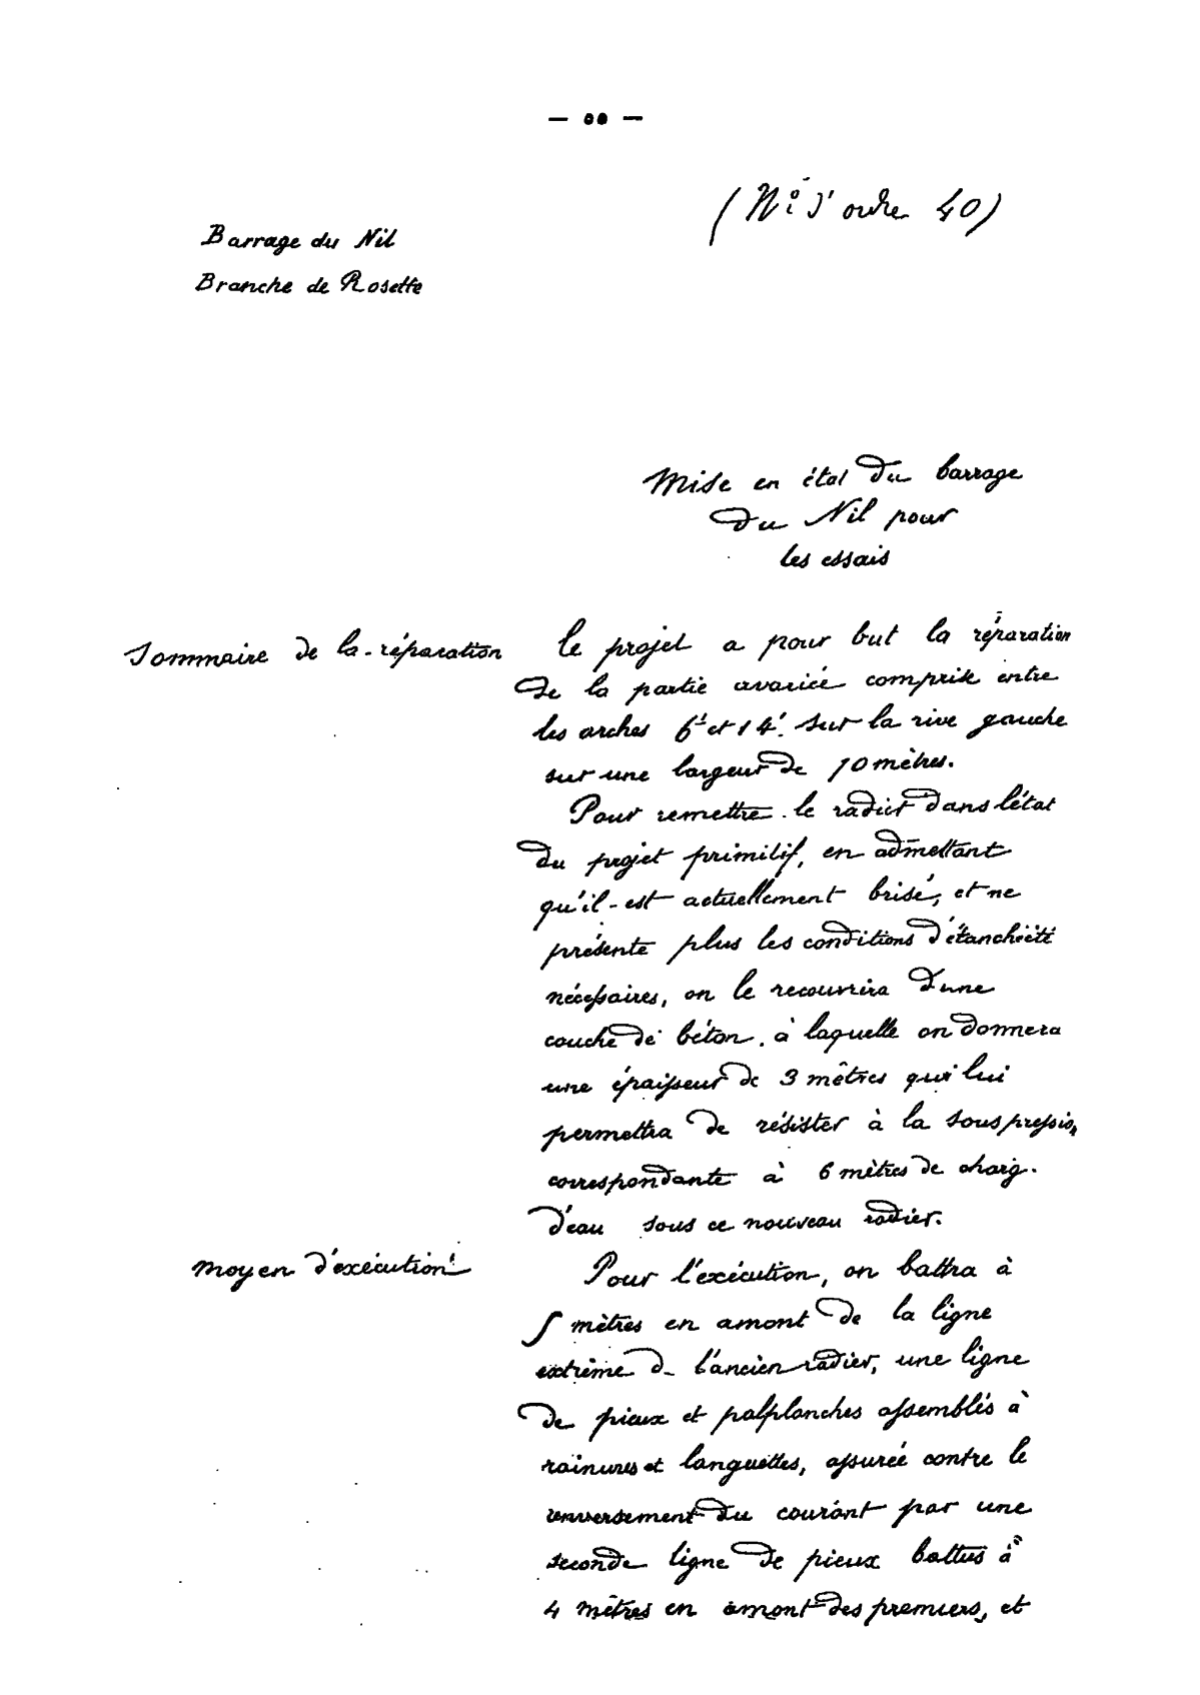 (N° d'ordre 40)
Barrage du Nil
Branche de Rosette
Mise en état du barrage
du Nil pour
les essais
Sommaire de la réparation
le projet a pour but la réparation
de la partie avariée comprise entre
les arches 6e et 14e. sur la rive gauche
sur une largeur de 10 mètres.
Pour remettre le radier dans l'état
du projet primitif, en admettant
qu'il est actuellement brisé, et ne
présente plus les conditions d'étanchéité
nécessaires, on le recouvrira d'une
couche de béton, à laquelle on donnera
une épaisseur de 3 mètres qui lui
permettra de résister à la souspression
correspondante à 6 mètres de charg.
d'eau sous ce nouveau radier.
Moyen d'exécution
Pour l'exécution, on battra à
5 mètres en amont de la ligne
extrême de l'ancien radier, une ligne
de pieux et palplanches assemblés à
rainures et languettes, assurée contre le
renversement du courant par une
seconde ligne de pieux battus à
4 mètres en amont des premiers, et